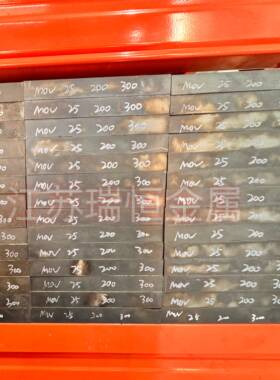 MOV 25 200 300
MOV 25 200 300
MOV 25 200 300
MOV 25 200 300
MOV 25 200 300
MOV 25 200 300
MOV 25 200 300
MOV 25 200 300
MOV 25 200 300
MOV 25 200 300
MOV 25 200 300
MOV 25 200 300
MOV 25 200 300
MOV 25 200 300
MOV 25 200
MOV 25 200
MOV 25 200
MOV 25 200
MOV 25 200
MOV 25 200
MOV 25 200
MOV 25 200
MOV 25 200
MOV 25 200
MOV 25 200
MOV 25 200
MOV 25 200 300
MOV 25 200 300
300
300
300
300
江苏瑞恒金属